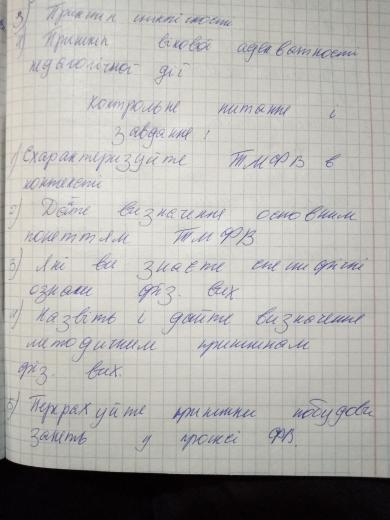 3) Принцип циклічності
4) Принцип вікової адекватності
педагогічної дії
Контрольне питання і
завдання!
1) Схарактеризуйте ТМФВ в
контексті
2) Дайте визначення основним
поняттям ТМФВ
3) Які ви знаєте специфічні
ознаки фіз. вих
4) Назвіть і дайте визначення
методичним принципам
фіз. вих.
5) Перерахуйте принципи побудови
занять у процесі ФВ.